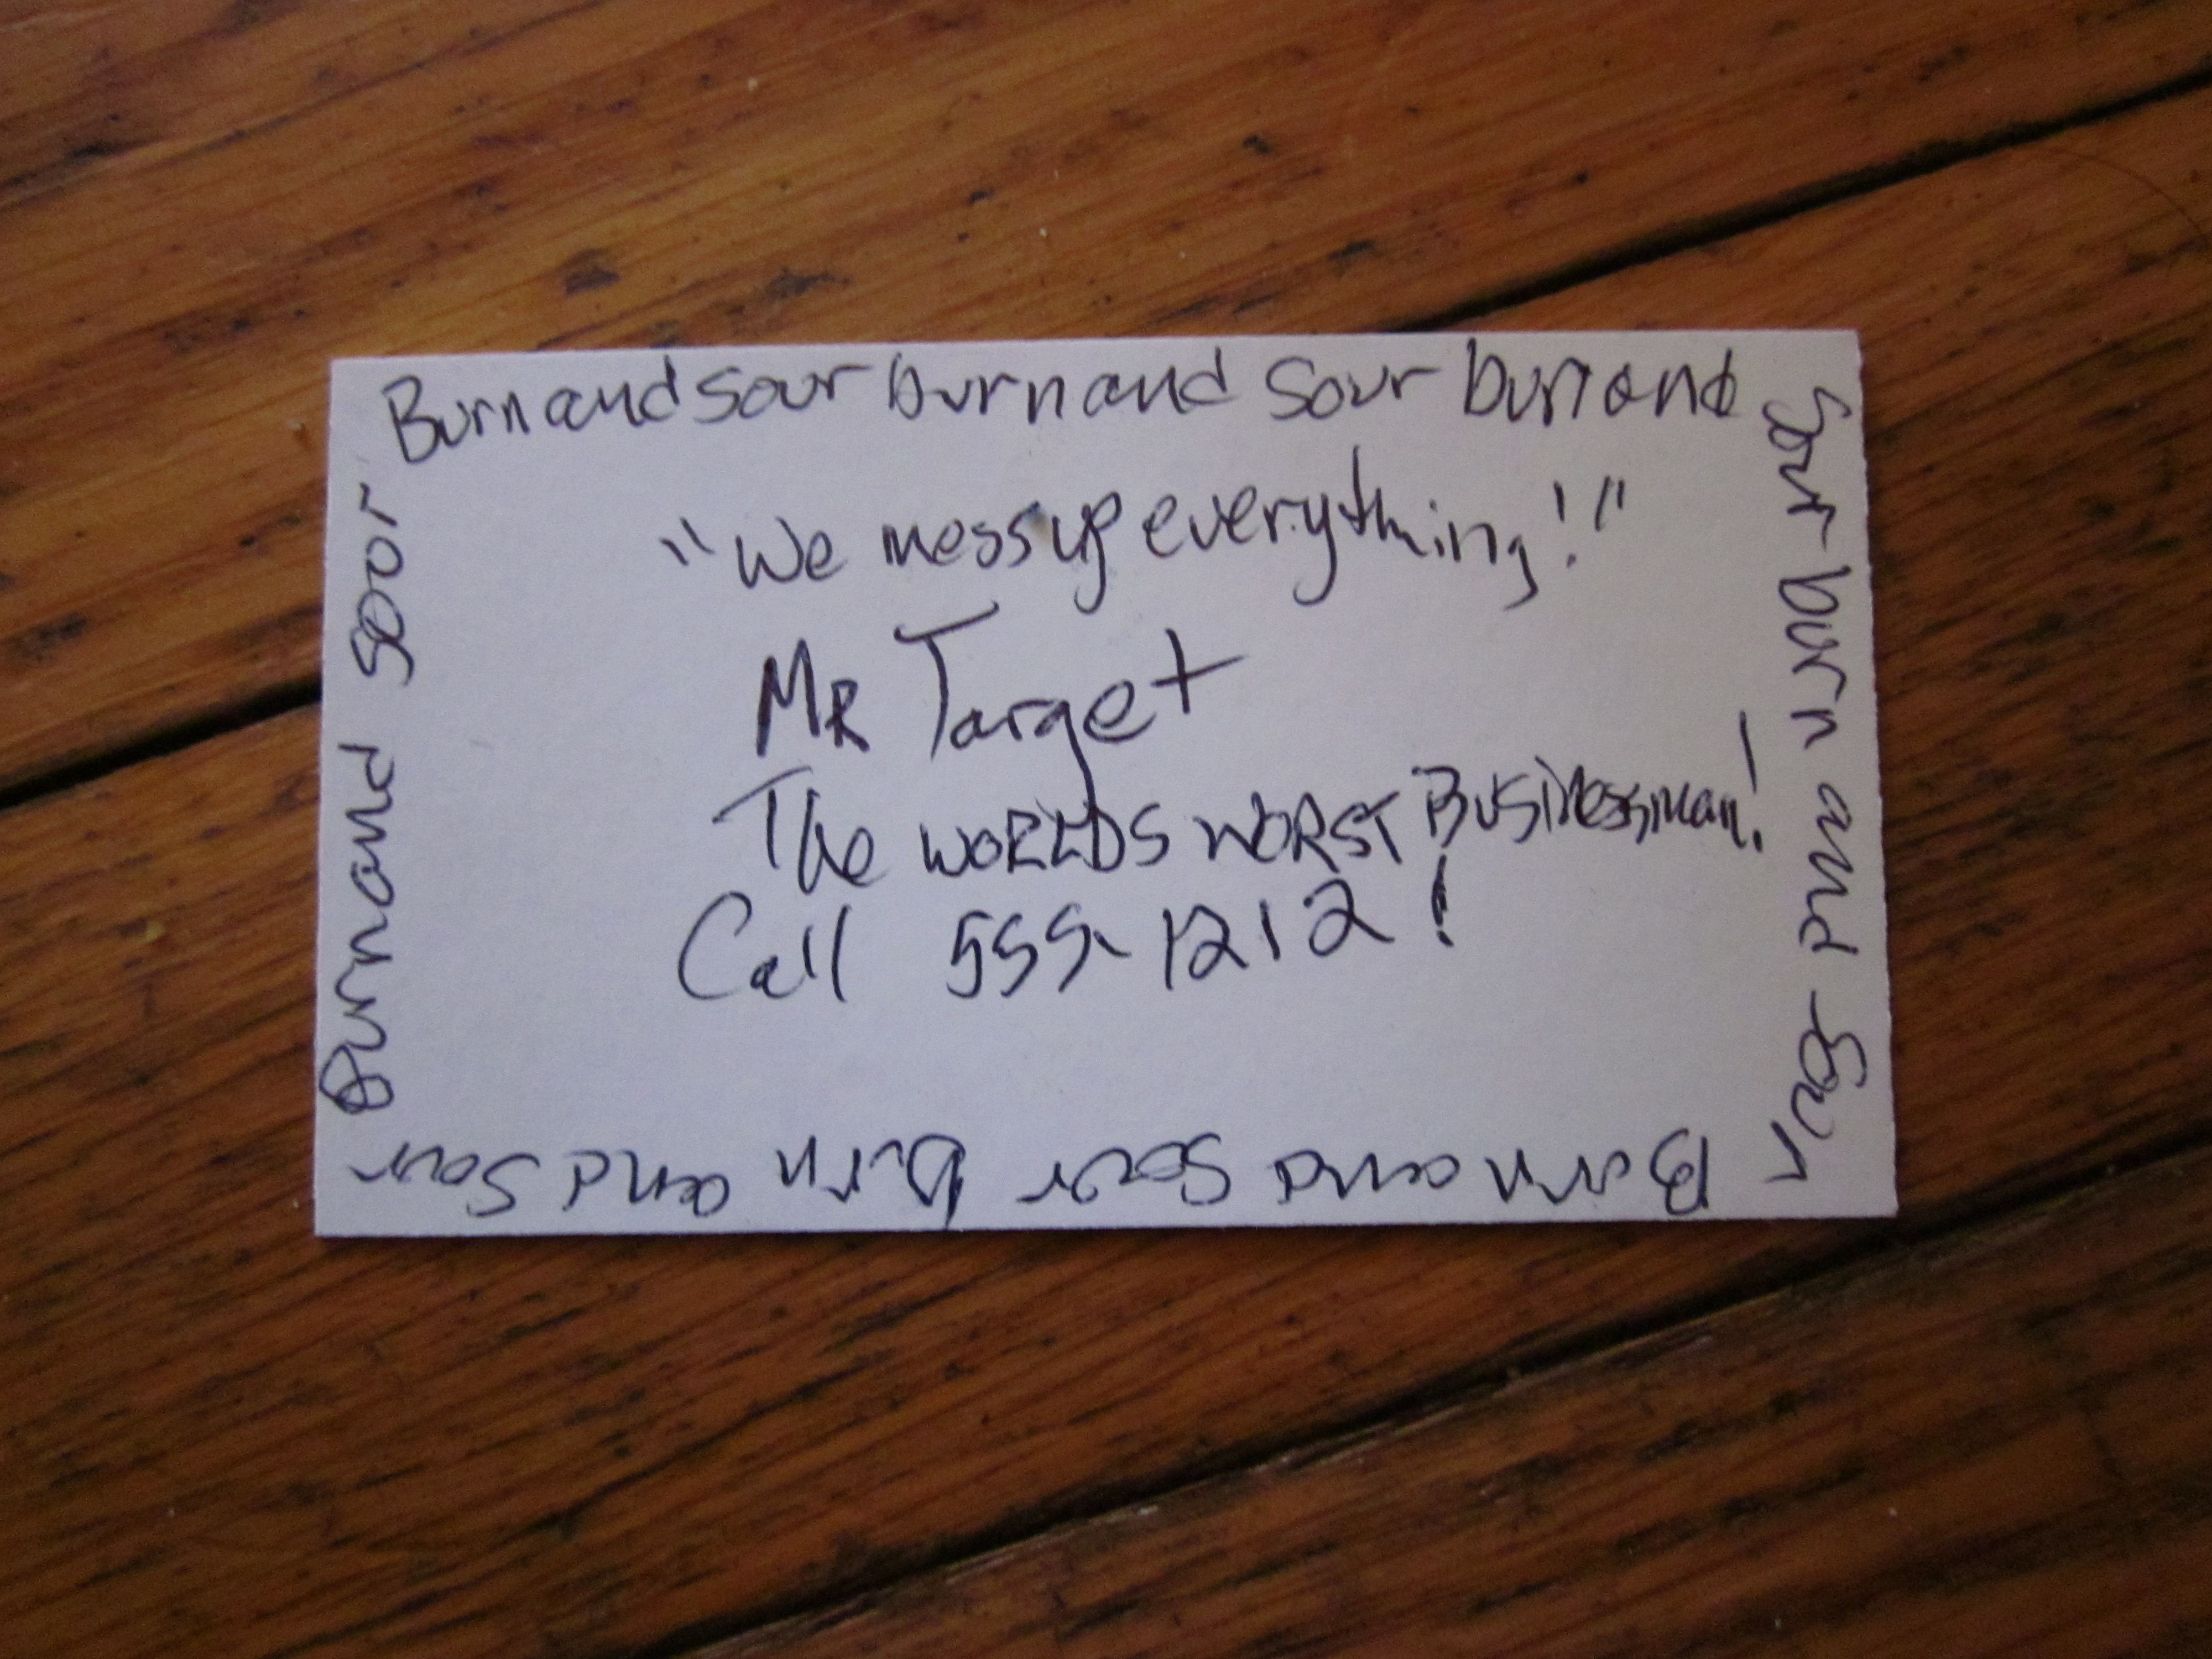 Burn and sour burn and sour burn and
sour burn and sour
Burn and sour burn and sour
Burn and sour
"We mess up everything!"
MR Target
The WORLDS WORST Businessman!
Call 555-1212!